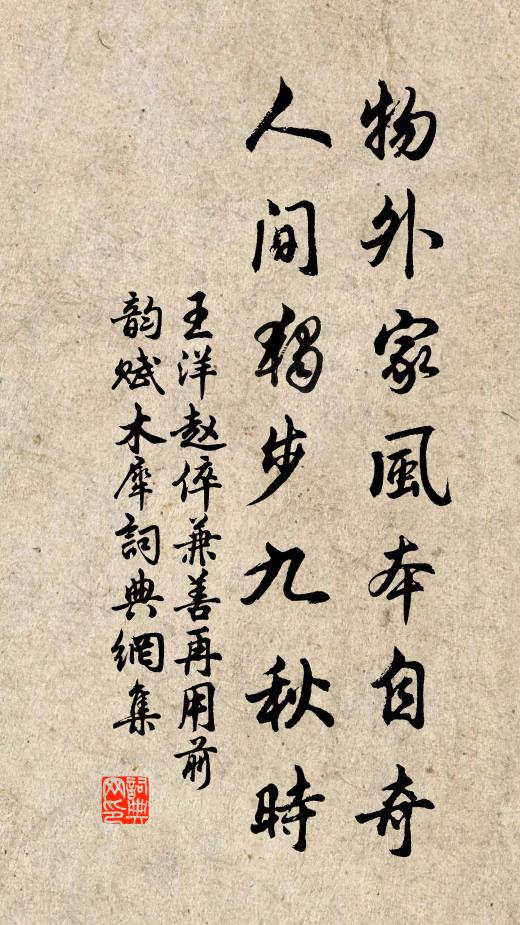 物外家風本自奇
人间獨步九秋時
王洋赵倅兼善再用前
韵赋木犀詞典網集
詞典
网印